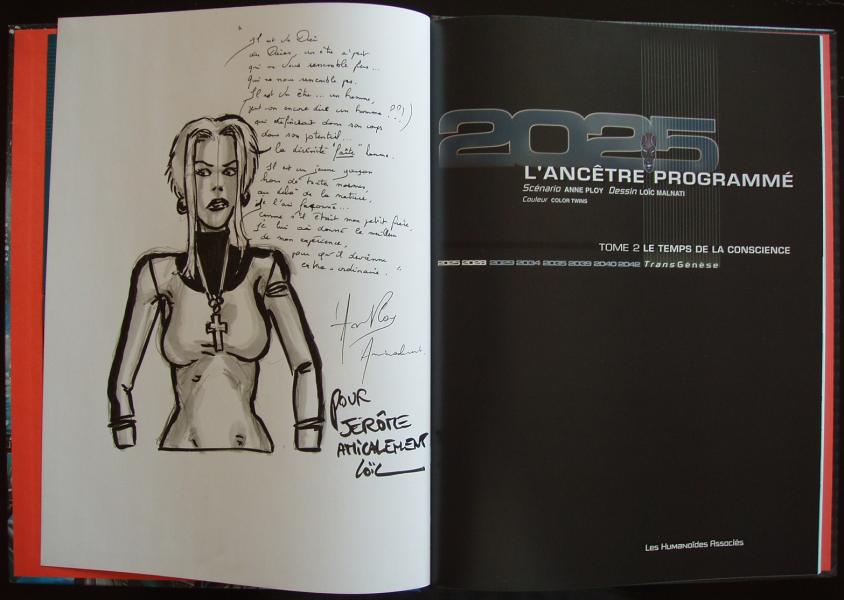 Il est un Dieu
des Dieux, un être à part
qui ne vous ressemble plus...
qui ne nous ressemble pas.
Il est un être... un homme,
peut-on encore dire un homme ??!)
qui dans son corps
dans son potentiel...
la divinité "faite" homme.
Il est un jeune garçon
hors de toutes normes,
au delà de la nature,
je l'ai façonné...
comme s'il était mon petit frère,
je lui ai donné le meilleur
de mon expérience,
pour qu'il devienne
extra-ordinaire.
Ann Ploy
Amicalement.
POUR
JÉRÔME
AMICALEMENT
LOÏC
2025
L'ANCÊTRE PROGRAMMÉ
Scénario ANNE PLOY Dessin LOÏC MALNATI
Couleur COLOR TWINS
TOME 2 LE TEMPS DE LA CONSCIENCE
2025 2028 2029 2034 2035 2039 2040 2042 TransGénèse
Les Humanoïdes Associés